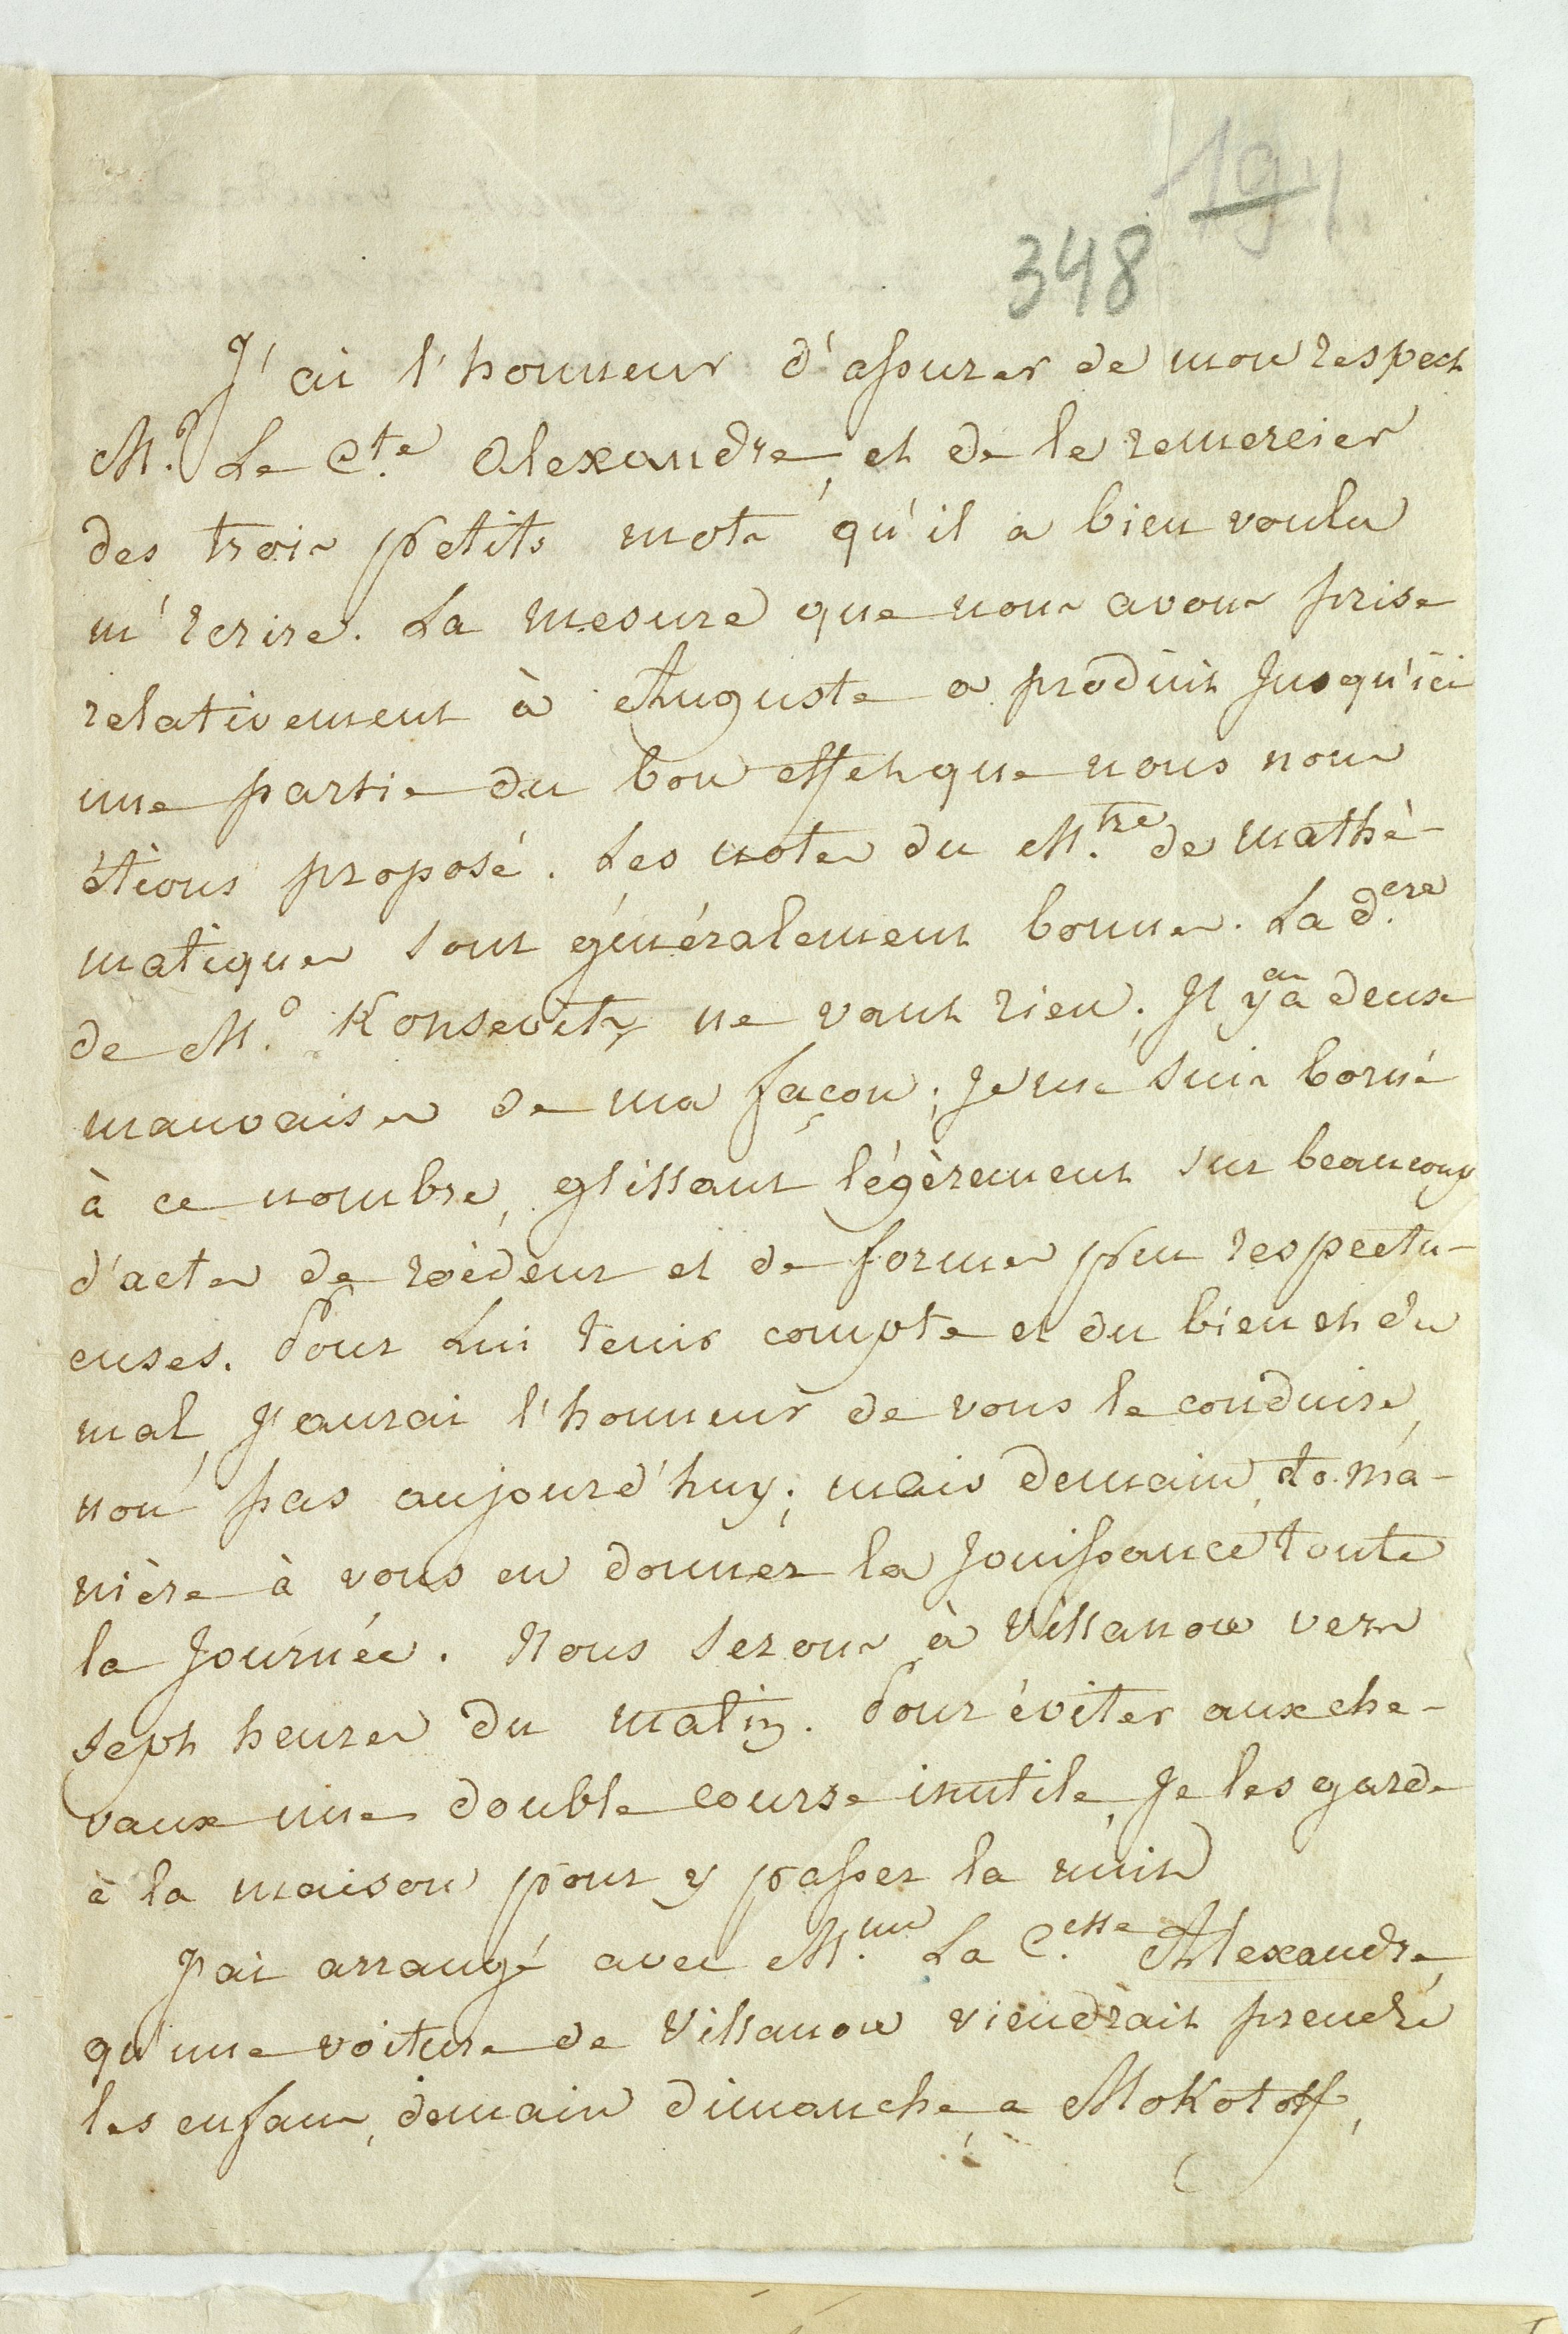 194
348
J'ai l'honneur d'assurer de mon respect
M.r Le C.te Alexandre, et de le remercier
des trois petits mots qu'il a bien voulu
m'écrire. La mesure que nous avons prise
relativement à Auguste a produit jusqu'ici
une partie du bon effet que nous nous
étions proposé. Les notes du M.tre de mathé-
matiques sont généralement bonnes. La d.ere
de M.o Konsevitz ne vaut rien. Il y en a deux
mauvaises de ma façon; je me suis borné
à ce nombre, glissant légèrement sur beaucoup
d'actes de roideur et de formes peu respectu-
euses. Pour Lui tenir compte et du bien et du
mal, J'aurai l'honneur de vous le conduire,
non pas aujourd'huy; mais demain, de ma-
nière à vous en donner la jouissance toute
la Journée. Nous serons à Villanow vers
sept heures du matin. Pour éviter aux che-
vaux une double course inutile, Je les garde
à la maison pour y passer la nuit
J'ai arrangé avec M.me La C.esse Alexandre,
qu'une voiture de Villanow viendrait prendre
les enfans, demain dimanche, a Mokotoff,